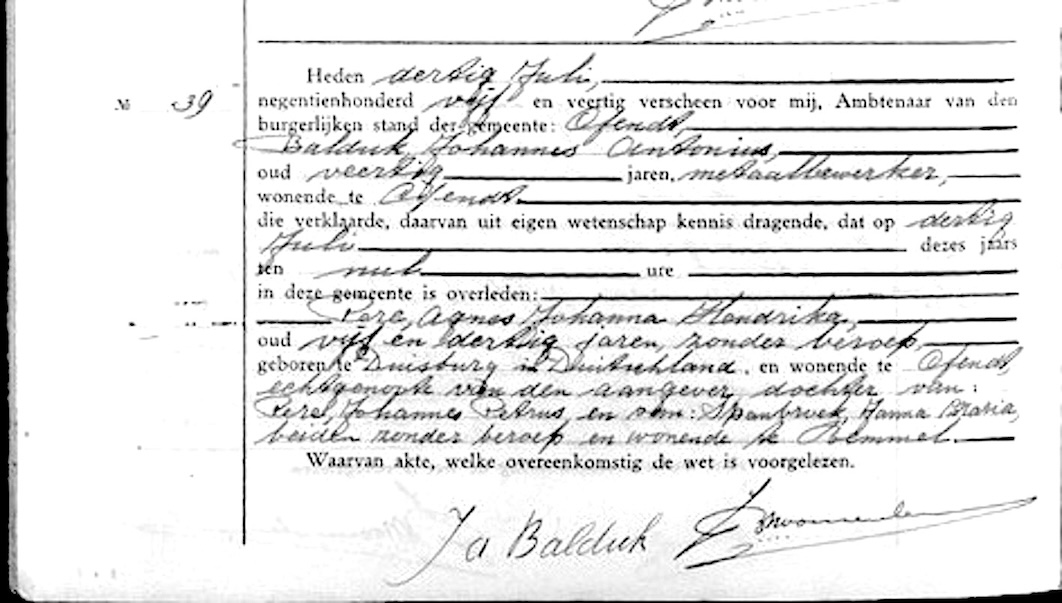 № 39
Heden dertig Juli,
negentienhonderd vijf en veertig verscheen voor mij, Ambtenaar van den
burgerlijken stand der gemeente: Ofendt,
Balduk, Johannes Antonius,
oud veertig jaren, metaalbewerker,
wonende te Ofendt.
die verklaarde, daarvan uit eigen wetenschap kennis dragende, dat op dertig
Juli dezes jaars
ten nul ure
in deze gemeente is overleden:
Agnes Johanna Hendrika,
oud vijf en dertig jaren, zonder beroep,
geboren te Duisburg in Duitschland, en wonende te Ofendt,
echtgenoote van den aangever, dochter van:
Johannes Petrus, en van: Spanbroek, Hanna Maria,
beiden zonder beroep en wonende te Bemmel.
Waarvan akte, welke overeenkomstig de wet is voorgelezen.
Ja Balduk